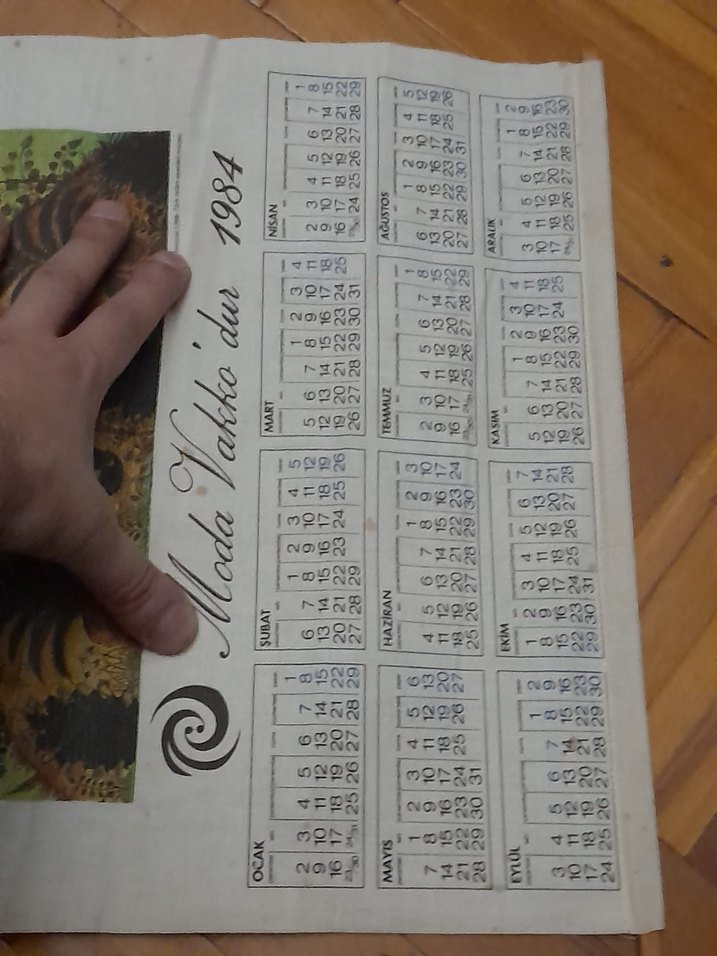 Moda Vakko'dur 1984
OCAK
1
2 3 4 5 6 7 8
9 10 11 12 13 14 15
16 17 18 19 20 21 22
23/30 24/31 25 26 27 28 29
ŞUBAT
1 2 3 4 5
6 7 8 9 10 11 12
13 14 15 16 17 18 19
20 21 22 23 24 25 26
27 28 29
MART
1 2 3 4
5 6 7 8 9 10 11
12 13 14 15 16 17 18
19 20 21 22 23 24 25
26 27 28 29 30 31
NİSAN
1
2 3 4 5 6 7 8
9 10 11 12 13 14 15
16 17 18 19 20 21 22
23/30 24 25 26 27 28 29
MAYIS
1 2 3 4 5 6
7 8 9 10 11 12 13
14 15 16 17 18 19 20
21 22 23 24 25 26 27
28 29 30 31
HAZİRAN
1 2 3
4 5 6 7 8 9 10
11 12 13 14 15 16 17
18 19 20 21 22 23 24
25 26 27 28 29 30
TEMMUZ
1
2 3 4 5 6 7 8
9 10 11 12 13 14 15
16 17 18 19 20 21 22
23/30 24/31 25 26 27 28 29
AĞUSTOS
1 2 3 4 5
6 7 8 9 10 11 12
13 14 15 16 17 18 19
20 21 22 23 24 25 26
27 28 29 30 31
EYLÜL
1 2
3 4 5 6 7 8 9
10 11 12 13 14 15 16
17 18 19 20 21 22 23
24 25 26 27 28 29 30
EKİM
1 2 3 4 5 6 7
8 9 10 11 12 13 14
15 16 17 18 19 20 21
22 23 24 25 26 27 28
29 30 31
KASIM
1 2 3 4
5 6 7 8 9 10 11
12 13 14 15 16 17 18
19 20 21 22 23 24 25
26 27 28 29 30
ARALIK
1 2
3 4 5 6 7 8 9
10 11 12 13 14 15 16
17 18 19 20 21 22 23
24/31 25 26 27 28 29 30